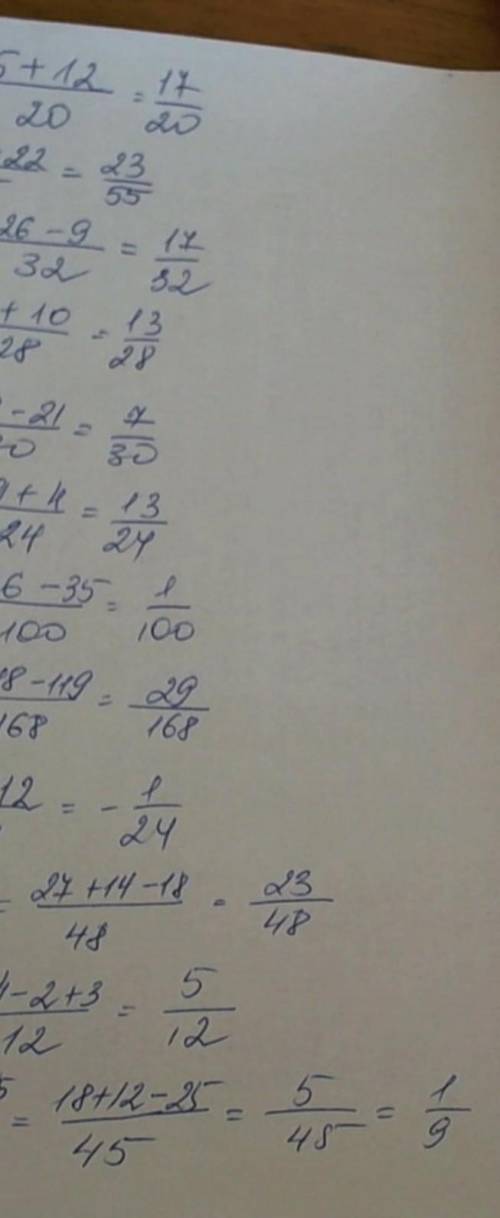 5+12/20 = 17/20
22 = 23/55
26-9/32 = 17/32
+10/28 = 13/28
-21/0 = 7/30
9+4/24 = 13/24
6-35/100 = 1/100
8-119/168 = 29/168
12 = -1/24
= 27+14-18/48 = 23/48
4-2+3/12 = 5/12
5 = 18+12-25/45 = 5/45 = 1/9